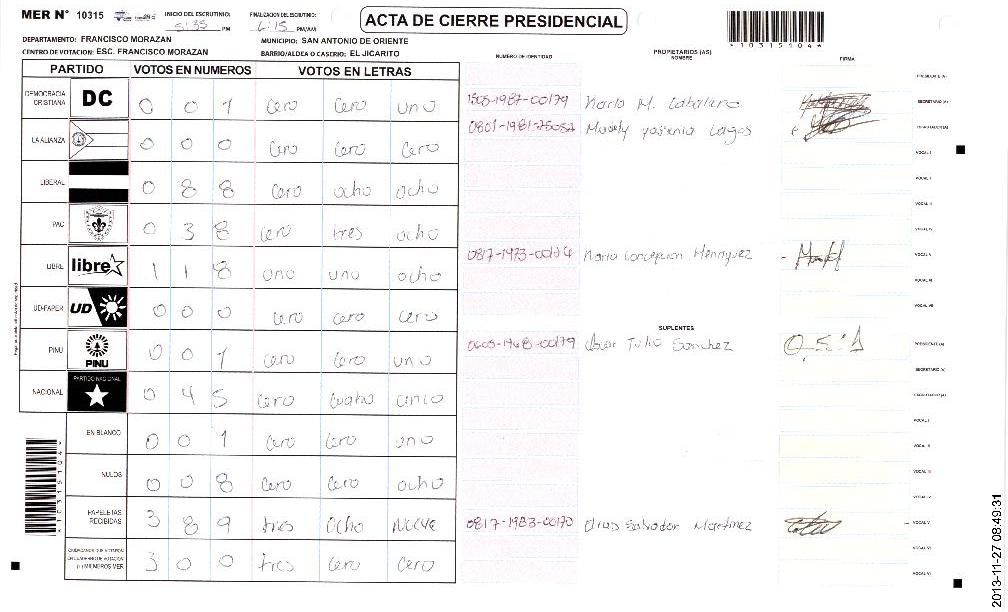 MER N° 10315 INICIO DEL ESCRUTINIO: 5:35 PM FINALIZACION DEL ESCRUTINIO: 6:15 PM/AM ACTA DE CIERRE PRESIDENCIAL
DEPARTAMENTO: FRANCISCO MORAZAN MUNICIPIO: SAN ANTONIO DE ORIENTE
CENTRO DE VOTACION: ESC. FRANCISCO MORAZAN BARRIO/ALDEA O CASERIO: EL JICARITO
*10315104*
NUMERO DE IDENTIDAD PROPIETARIOS (AS) NOMBRE FIRMA
PARTIDO VOTOS EN NUMEROS VOTOS EN LETRAS
PRESIDENTE (A)
DEMOCRACIA CRISTIANA DC 0 0 1 cero cero uno 1503-1987-00179 SECRETARIO (A)
LA ALIANZA 0 0 0 cero cero cero 0801-1981-25052 ESCRUTADOR (A)
VOCAL I
LIBERAL 0 8 8 cero ocho ocho VOCAL II
VOCAL III
PAC 0 3 8 cero tres ocho VOCAL IV
LIBRE libre 1 1 8 uno uno ocho Maria Concepcion Henriquez VOCAL V
VOCAL VI
UD-FAPER UD 0 0 0 cero cero cero VOCAL VII
SUPLENTES
PINU PINU 0 0 1 cero cero uno Oscar Tulio Sanchez PRESIDENTE (A)
SECRETARIO (A)
NACIONAL PARTIDO NACIONAL 0 4 5 cero cuatro cinco ESCRUTADOR (A)
VOCAL I
EN BLANCO 0 0 1 cero cero uno VOCAL II
VOCAL III
NULOS 0 0 8 cero cero ocho VOCAL IV
PAPELETAS RECIBIDAS 3 8 9 tres ocho nueve 0817-1983-00170 Elias Salvador Martinez VOCAL V
CIUDADANOS QUE VOTARON EN CUADERNO DE VOTACION (+) MIEMBROS MER 3 0 0 tres cero cero VOCAL VI
VOCAL VII
*10315104*
2013-11-27 08:49:31